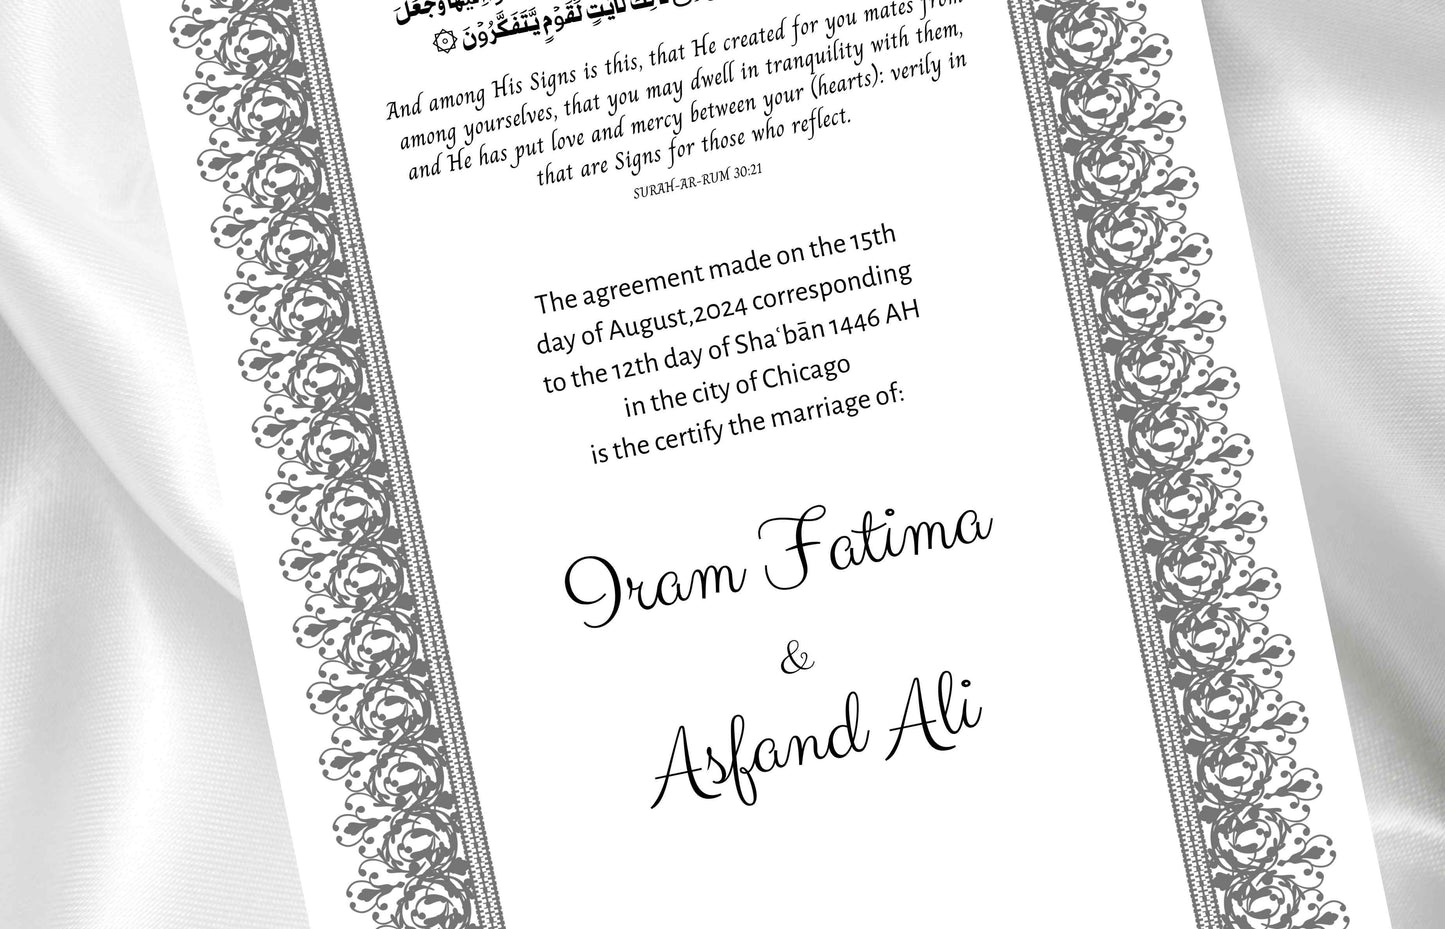 لَاٰيٰتٍ لِّقَوْمٍ يَّتَفَكَّرُوْنَ
And among His Signs is this, that He created for you mates from
among yourselves, that you may dwell in tranquility with them,
and He has put love and mercy between your (hearts): verily in
that are Signs for those who reflect.
SURAH-AR-RUM 30:21
The agreement made on the 15th
day of August,2024 corresponding
to the 12th day of Shaʿbān 1446 AH
in the city of Chicago
is the certify the marriage of:
Iram Fatima
&
Asfand Ali